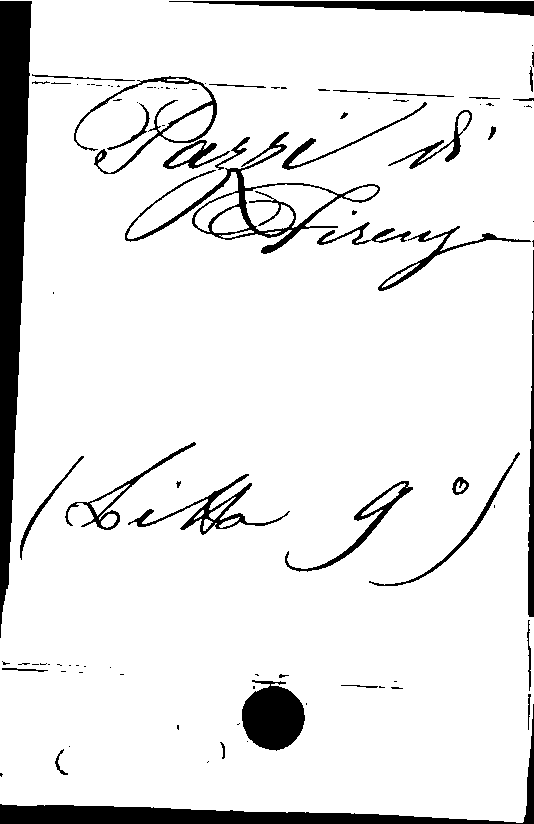 Pazzi di
Firenze
(Litta 9°)